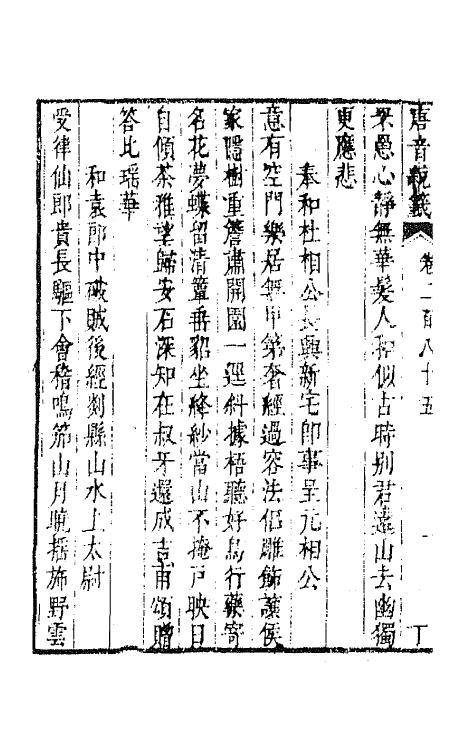 唐音統籖 卷二百八十五 丁
衆愚心靜無華髮人和似古時别君遠山去幽獨
更應悲
奉和杜相公長興新宅即事呈元相公
意有空門樂居無甲第奢經過容法侶雕飾讓侯
家隱樹重簷肅開園一逕斜據梧聽好鳥行藥寄
名花夢蝶留清簟垂貂坐絳紗當山不掩戶映日
自傾茶雅望歸安石深知在叔牙還成吉甫頌贈
答比瑶華
和袁郎中破賊後經剡縣山水上太尉
受律仙郎貴長驅下會稽鳴笳山月曉揺斾野雲